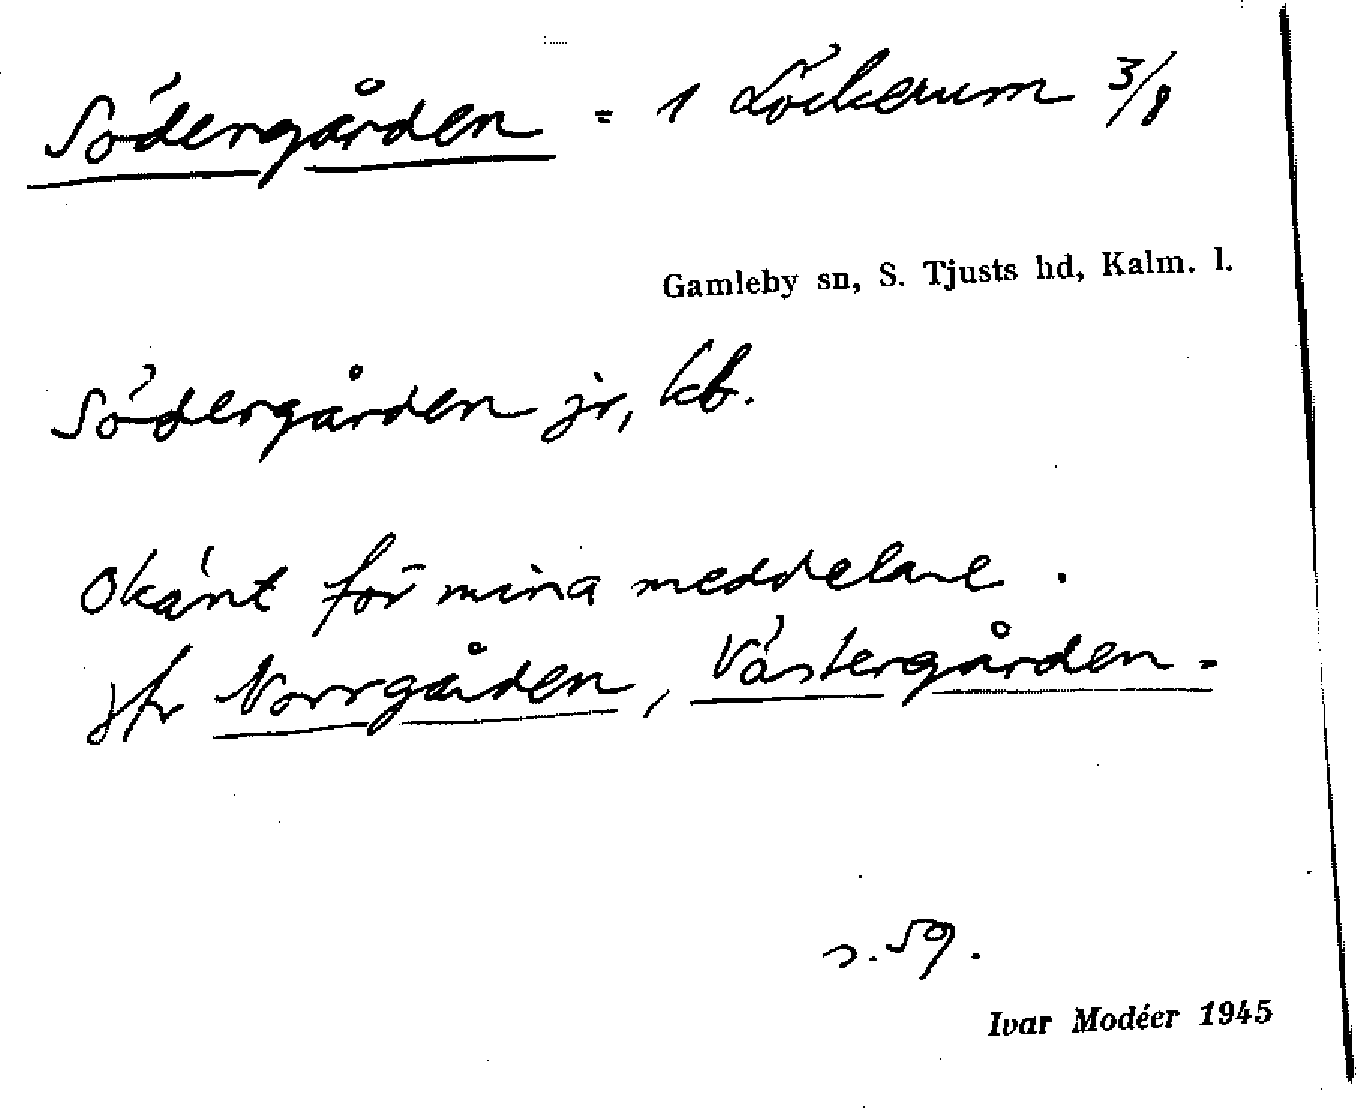 Södergården = 1 Löckerum 3/8
Gamleby sn, S. Tjusts hd, Kalm. l.
Södergården jr, kb.
Okänt för mina meddelare.
Jfr Norrgården, Västergården.
s. 59.
Ivar Modéer 1945